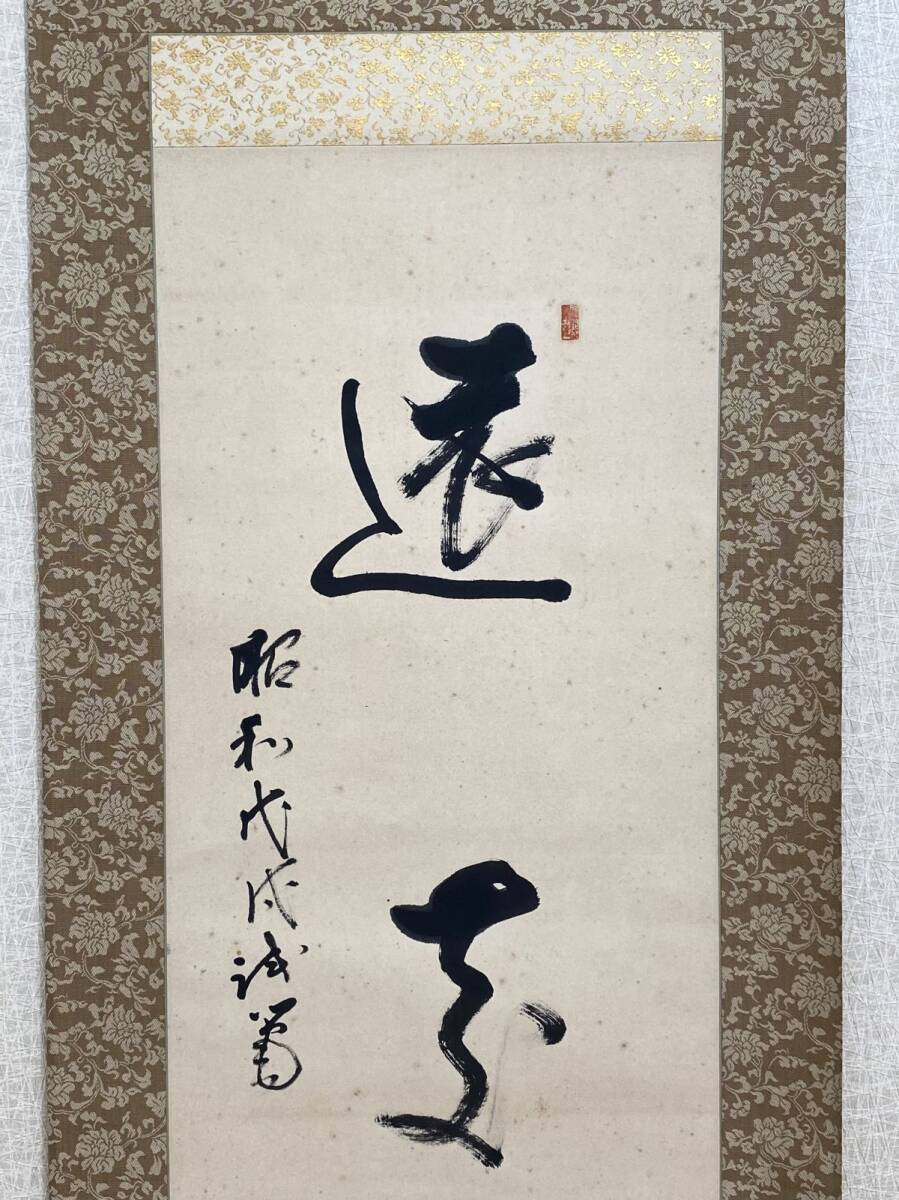 遠
昭和戊戌試筆